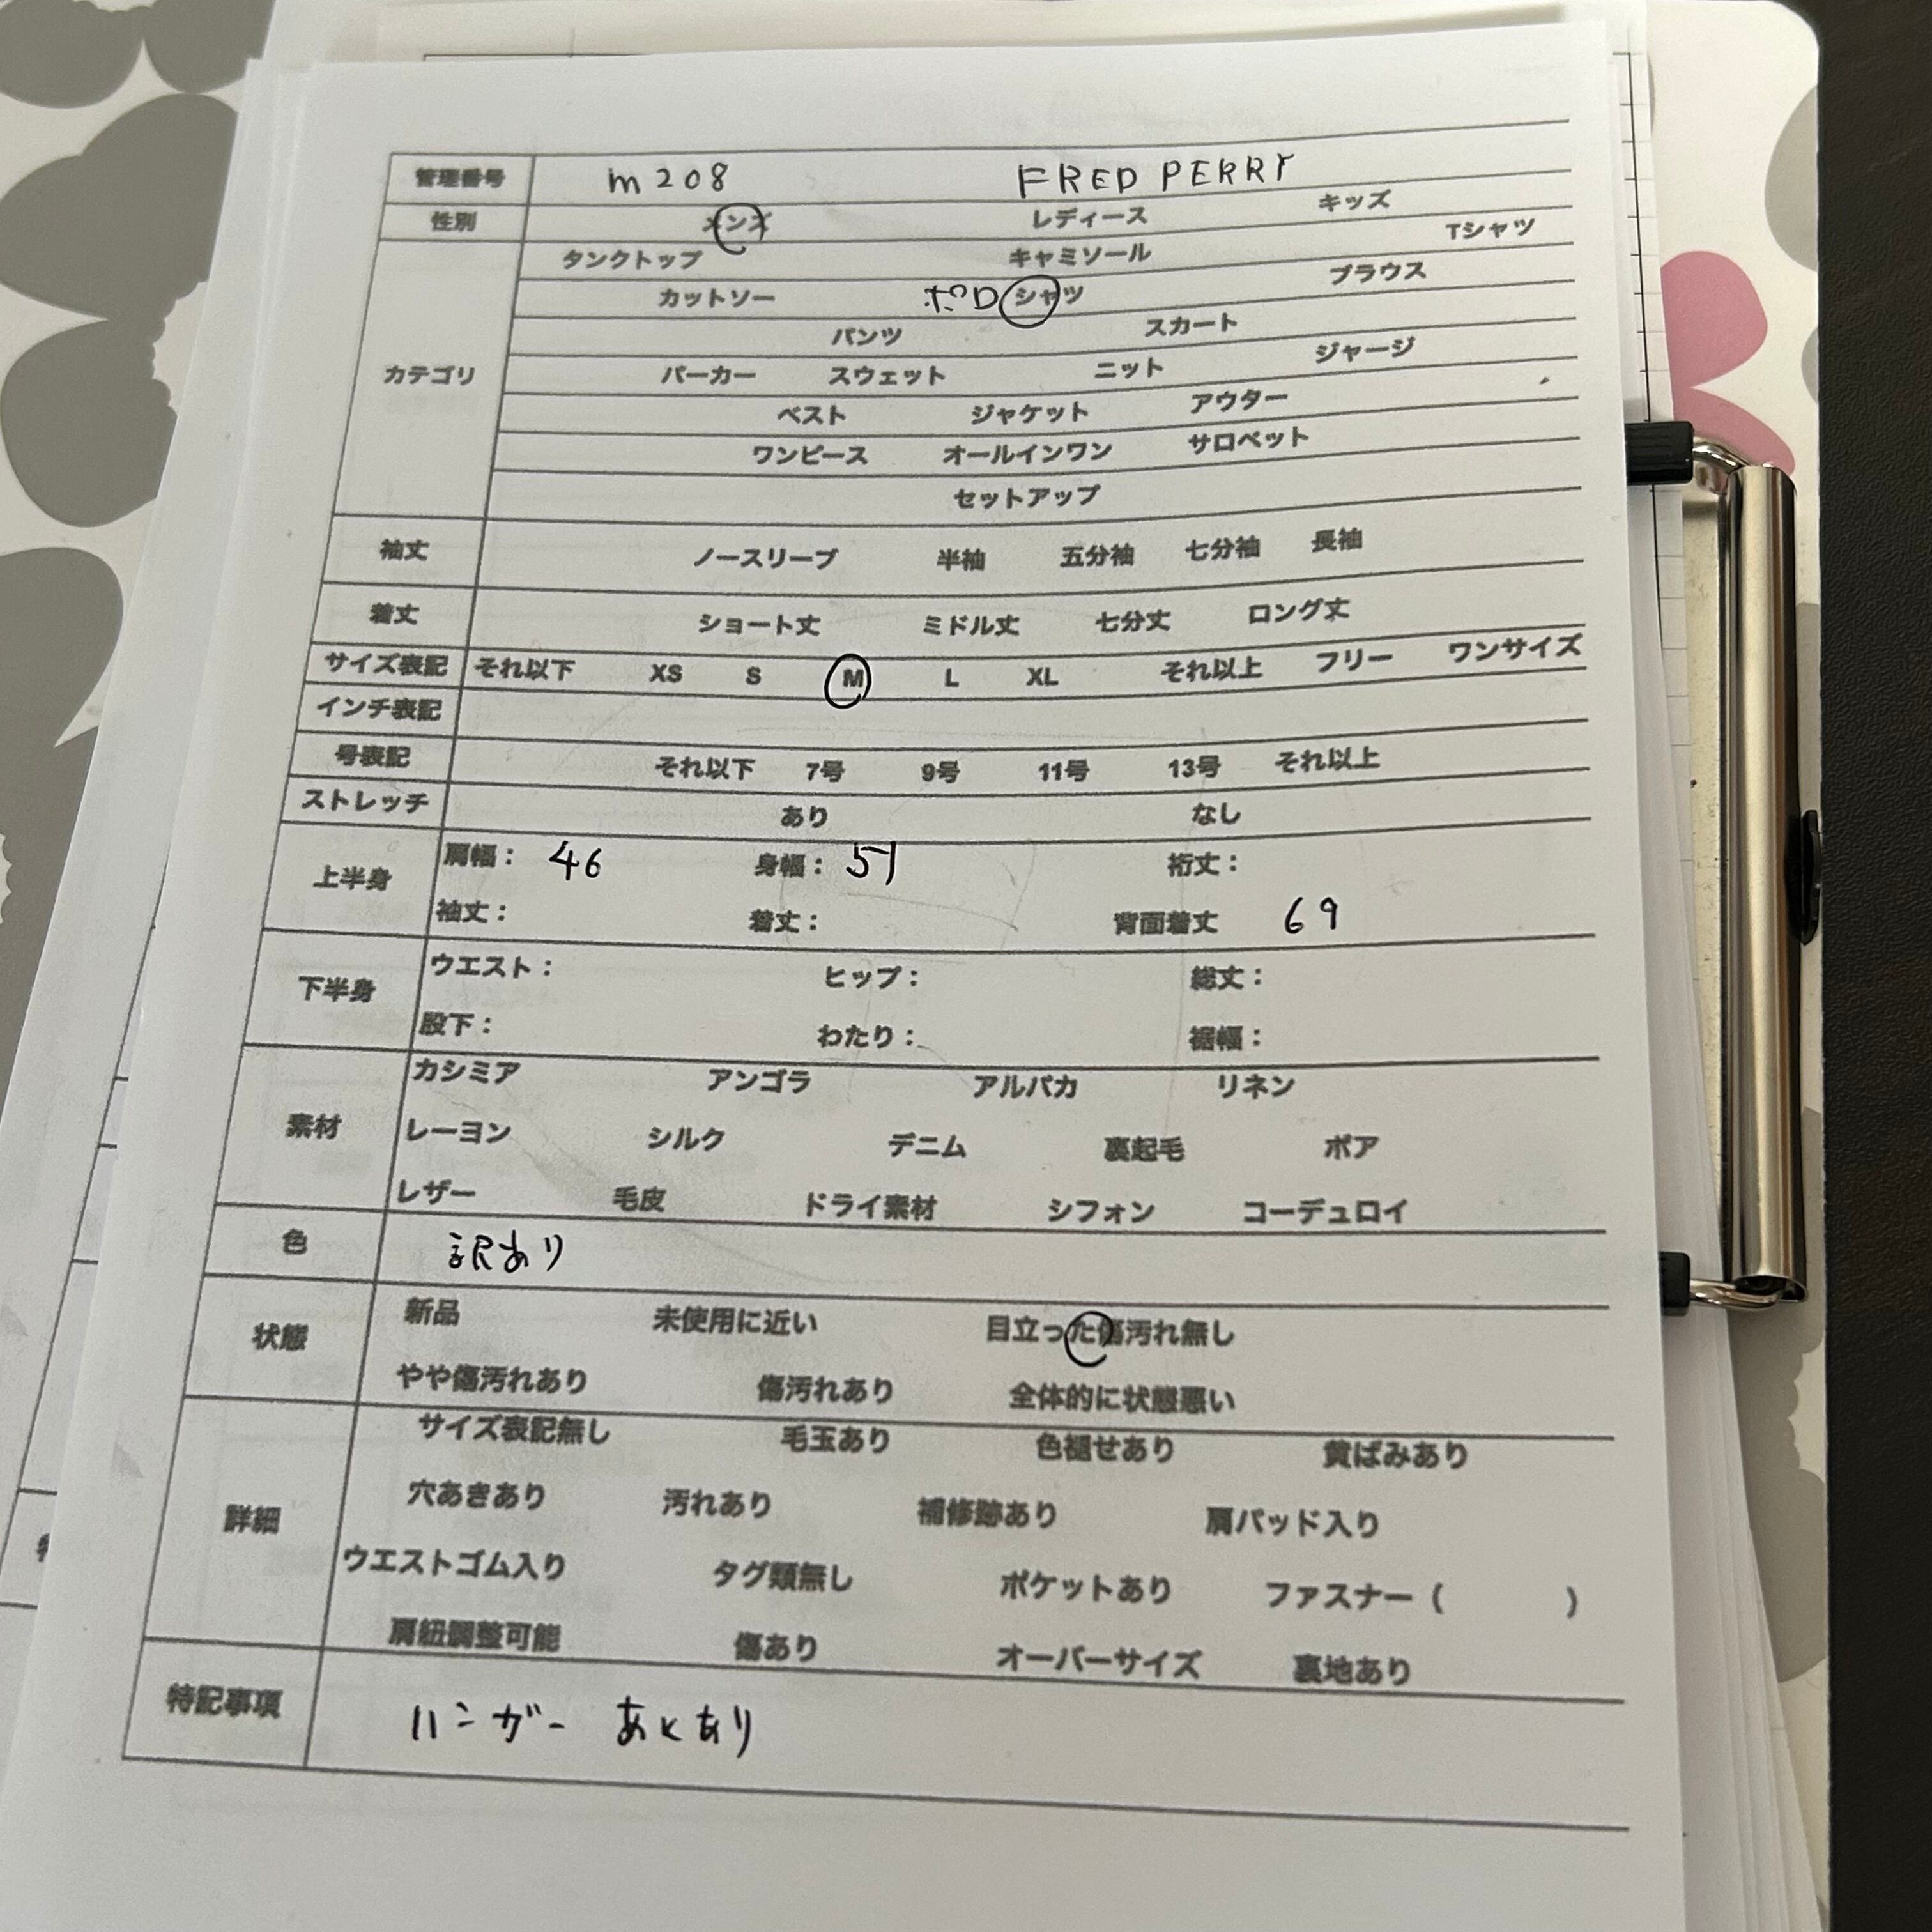 管理番号 m208 FRED PERRY
性別 メンズ レディース キッズ
カテゴリ タンクトップ キャミソール Tシャツ
カットソー ポロ シャツ ブラウス
パンツ スカート
パーカー スウェット ニット ジャージ
ベスト ジャケット アウター
ワンピース オールインワン サロペット
セットアップ
袖丈 ノースリーブ 半袖 五分袖 七分袖 長袖
着丈 ショート丈 ミドル丈 七分丈 ロング丈
サイズ表記 それ以下 XS S M L XL それ以上 フリー ワンサイズ
インチ表記
号表記 それ以下 7号 9号 11号 13号 それ以上
ストレッチ あり なし
上半身 肩幅： 46 身幅： 51 裄丈：
袖丈： 着丈： 背面着丈 69
下半身 ウエスト： ヒップ： 総丈：
股下： わたり： 裾幅：
素材 カシミア アンゴラ アルパカ リネン
レーヨン シルク デニム 裏起毛 ボア
レザー 毛皮 ドライ素材 シフォン コーデュロイ
色 訳あり
状態 新品 未使用に近い 目立った傷汚れ無し
やや傷汚れあり 傷汚れあり 全体的に状態悪い
詳細 サイズ表記無し 毛玉あり 色褪せあり 黄ばみあり
穴あきあり 汚れあり 補修跡あり 肩パッド入り
ウエストゴム入り タグ類無し ポケットあり ファスナー（ ）
肩紐調整可能 傷あり オーバーサイズ 裏地あり
特記事項 ハンガー あとあり